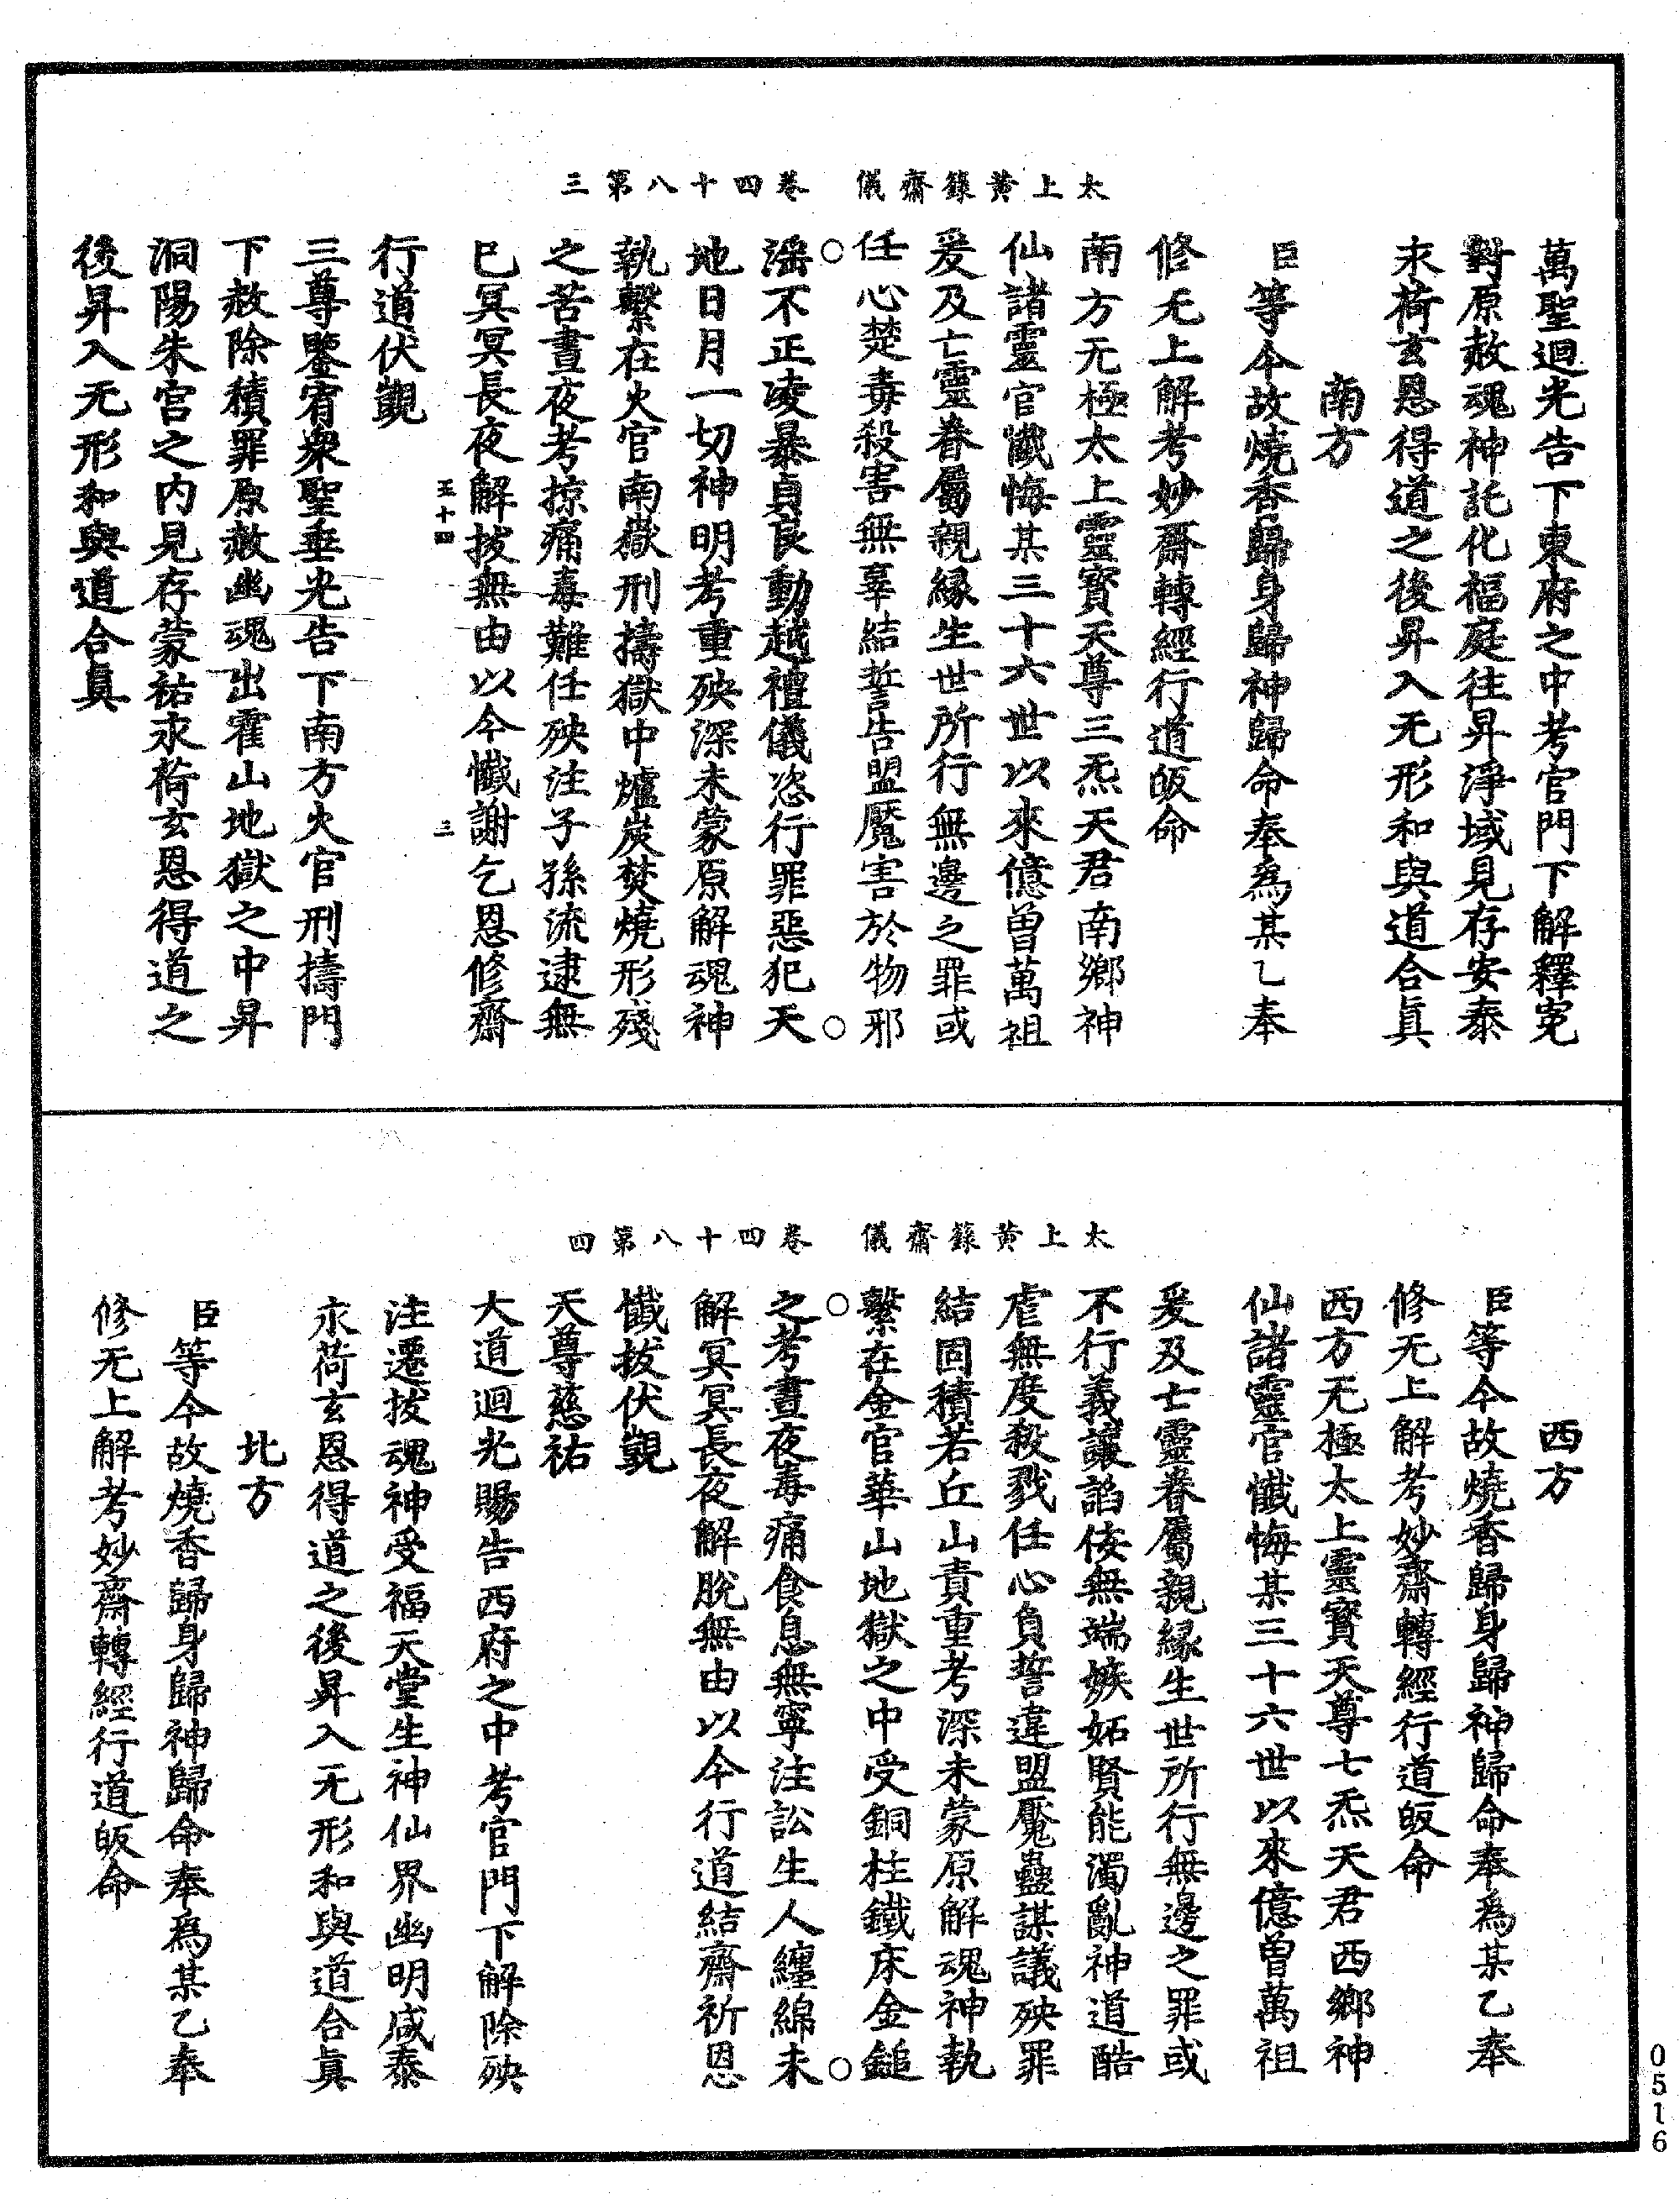 太上黃籙齋儀　卷四十八第三
萬聖迴光告下東府之中考官門下解釋寃
對原赦魂神託化福庭往昇淨域見存安泰
永荷玄恩得道之後昇入无形和與道合眞
南方
臣等今故燒香歸身歸神歸命奉為某乙奉
修无上解考妙齋轉經行道皈命
南方无極太上靈寳天尊三炁天君南鄉神
仙諸靈官懺悔某三十六世以來億曾萬祖
爰及亡靈眷屬親緣生世所行無邊之罪或
任心楚毒殺害無辜結誓告盟魘害於物邪
淫不正凌暴貞良動越禮儀恣行罪惡犯天
地日月一切神明考重殃深未蒙原解魂神
執繫在火官南嶽刑擣獄中爐炭焚燒形殘
之苦晝夜考掠痛毒難任殃注子孫流逮無
已冥冥長夜解拔無由以今懺謝乞恩修齋
王十四　三
行道伏覬
三尊鑒宥衆聖垂光告下南方火官刑擣門
下赦除積罪原赦幽魂出霍山地獄之中昇
洞陽朱宮之內見存蒙祐永荷玄恩得道之
後昇入无形和與道合眞
太上黃籙齋儀　卷四十八第四
西方
臣等今故燒香歸身歸神歸命奉為某乙奉
修无上解考妙齋轉經行道皈命
西方无極太上靈寳天尊七炁天君西鄉神
仙諸靈官懺悔某三十六世以來億曾萬祖
爰及亡靈眷屬親緣生世所行無邊之罪或
不行義讓諂佞無端嫉妬賢能濁亂神道酷
虐無度殺戮任心負誓違盟魘蠱謀議殃罪
結固積若丘山責重考深未蒙原解魂神執
繫在金官華山地獄之中受銅柱鐵床金鎚
之考晝夜毒痛食息無寧注訟生人纏綿未
解冥冥長夜解脫無由以今行道結齋祈恩
懺拔伏覬
天尊慈祐
大道迴光賜告西府之中考官門下解除殃
注遷拔魂神受福天堂生神仙界幽明咸泰
永荷玄恩得道之後昇入无形和與道合眞
北方
臣等今故燒香歸身歸神歸命奉為某乙奉
修无上解考妙齋轉經行道皈命
0516